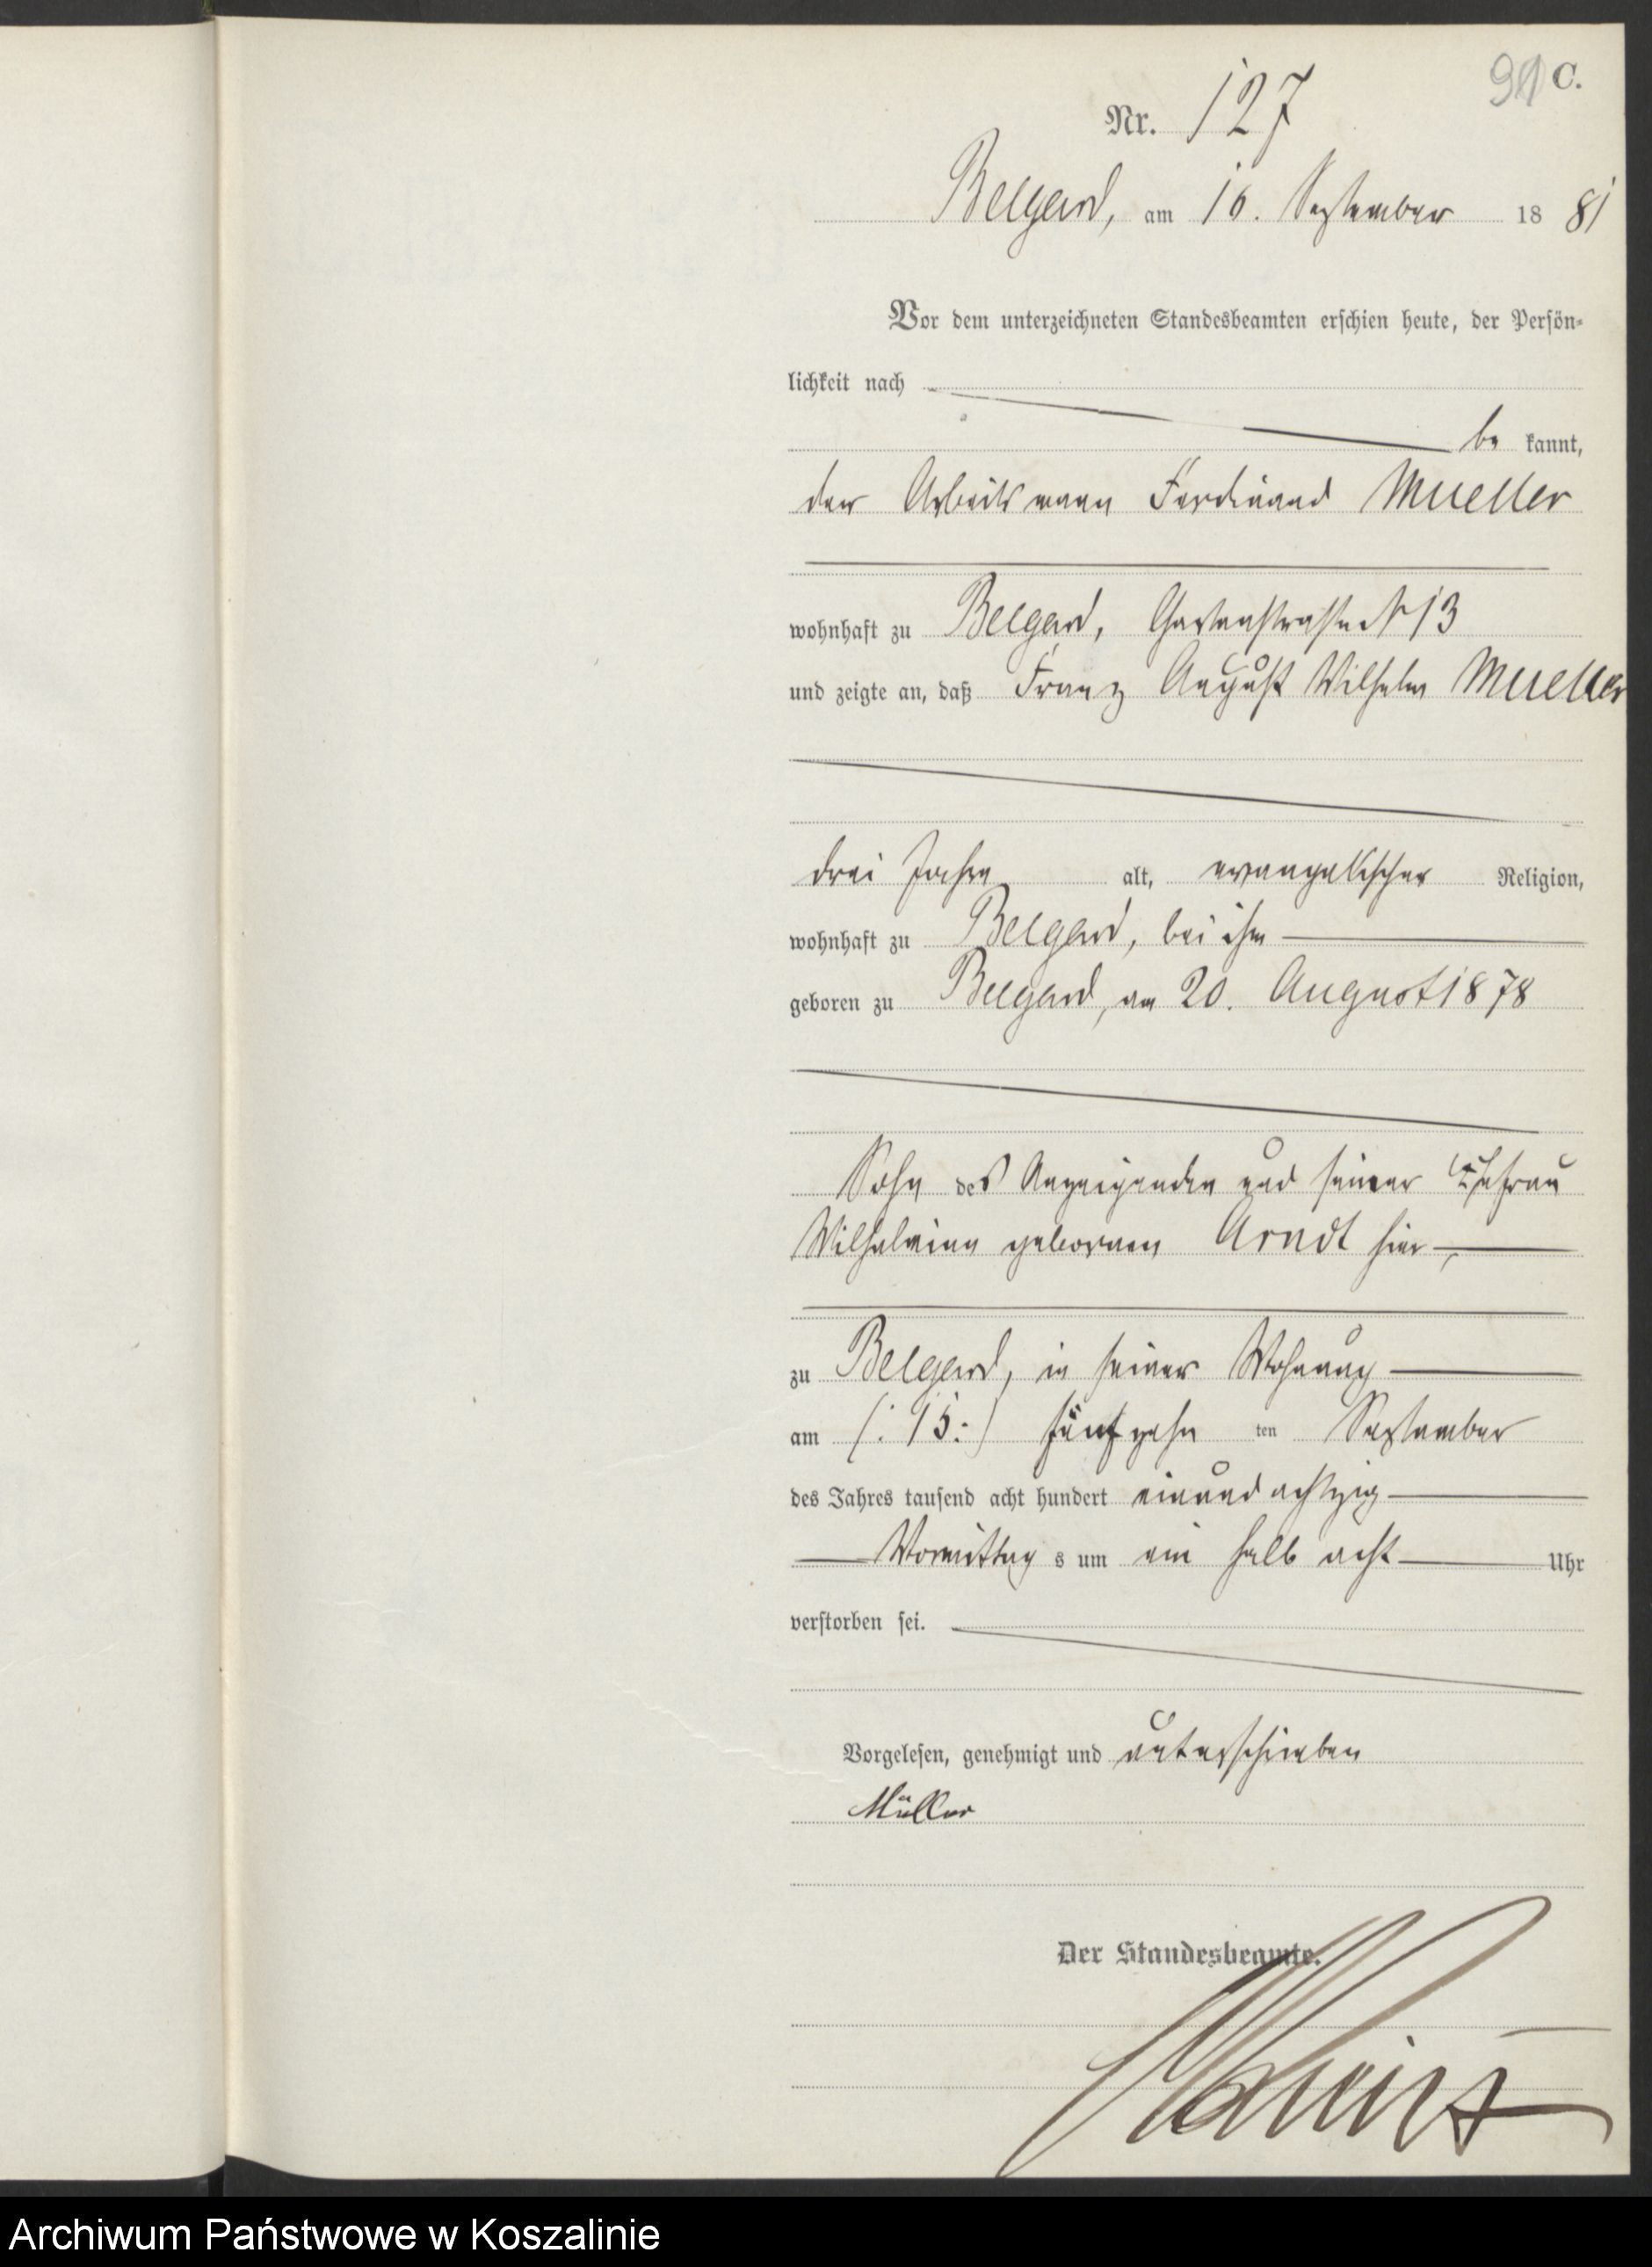 C.
Nr. 127
Belgard, am 16. September 1881
Vor dem unterzeichneten Standesbeamten erschien heute, der Persön-
lichkeit nach
be kannt,
der Arbeitsmann Ferdinand Mueller
wohnhaft zu Belgard, Gartenstrasse № 13
und zeigte an, daß Franz August Wilhelm Mueller
drei Jahre alt, evangelischer Religion,
wohnhaft zu Belgard, bei ihm
geboren zu Belgard, am 20. August 1878
Sohn des Anzeigenden und seiner Ehefrau
Wilhelmine gebornen Arndt hier,
zu Belgard, in seiner Wohnung
am (: 15 :) fünfzehn ten September
des Jahres tausend acht hundert einundachtzig
Vormittag s um ein halb acht Uhr
verstorben sei.
Vorgelesen, genehmigt und unterschrieben
Müller
Der Standesbeamte.
Archiwum Państwowe w Koszalinie